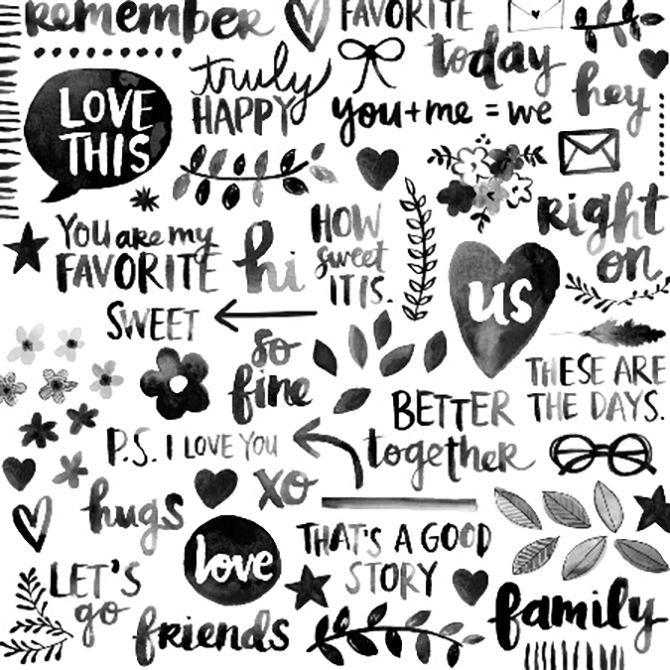 remember
FAVORITE
today
truly
HAPPY
you+me = we
hey
LOVE
THIS
RIGHT
on
You are my
FAVORITE
hi
HOW
sweet
IT IS.
us
SWEET
so
fine
THESE ARE
THE DAYS.
BETTER
together
P.S. I LOVE YOU
hugs
xo
love
THAT'S A GOOD
STORY
LET'S
go
friends
family